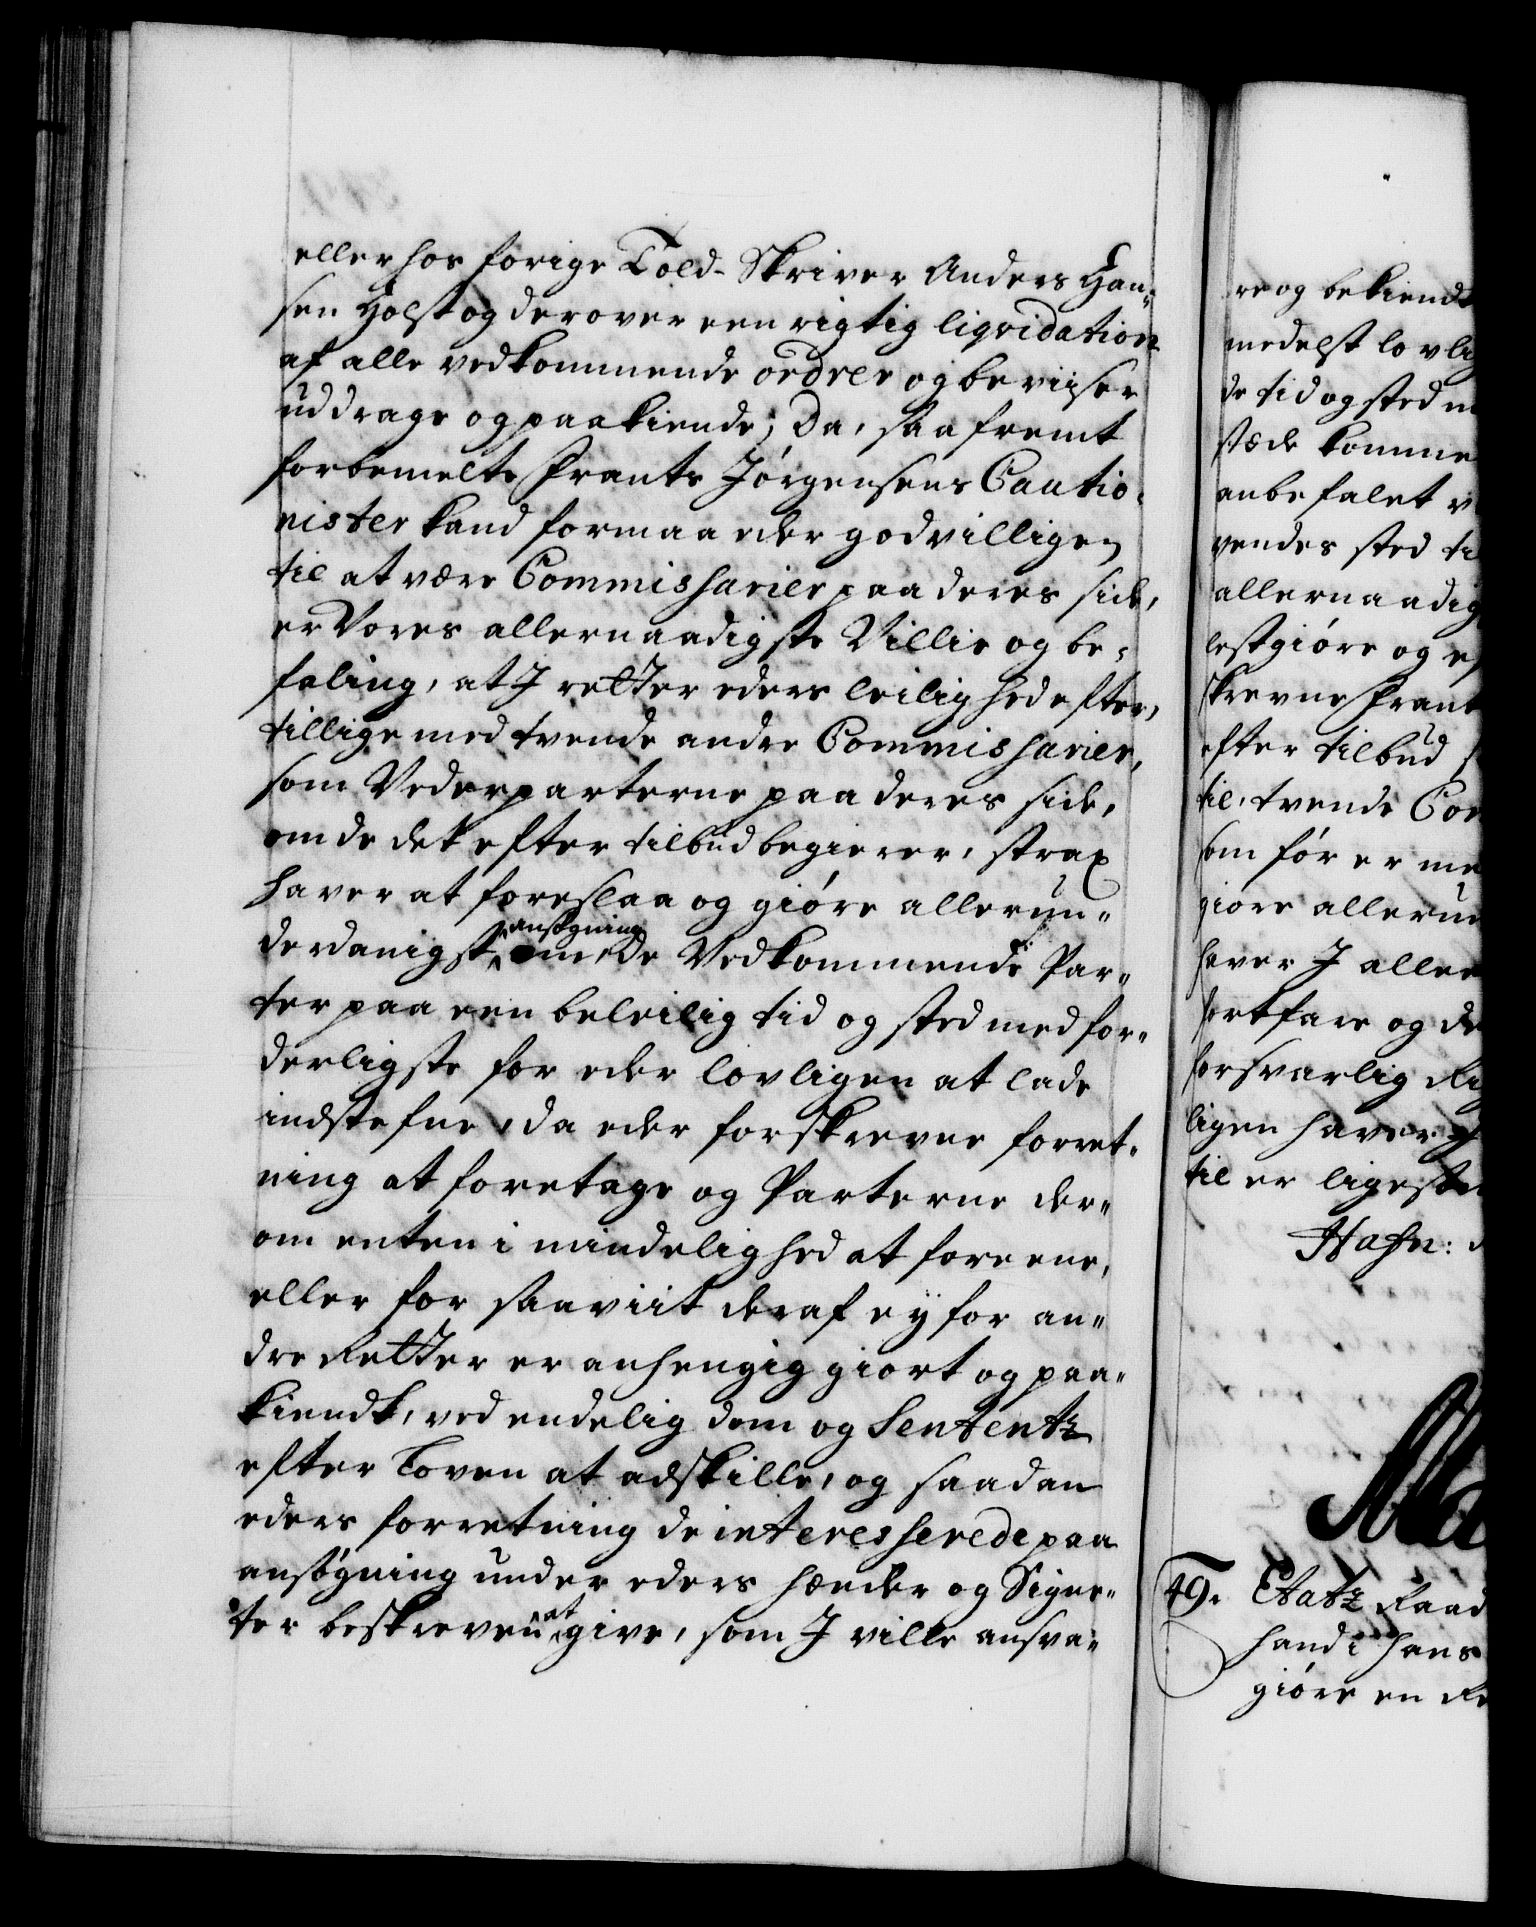 eller hos forige Told-Skriver Anders Han„
sen Holst og derover een rigtig liqvidation
af alle vedkommende ordrer og beviiser
uddrage og paakiende; Da, saafremt
forbemelte Frants Jörgensens Cautio„
nister kand formaa eder godvilligen
til at være Commissarier paa deres side,
er Vores allernaadigste Villie og be„
faling, at I retter eders leilighed efter,
tillige med tvende andre Commissarier,
som Vederparterne paa deres side,
om de det efter tilbud begierer, strax
haver at foreslaa og giöre allerun„
derdanigst ansögning om, de Vedkommende Par„
ter paa een beleilig tid og sted med for„
derligste for eder lovligen at lade
indstefne, da eder forskrevne forret„
ning at foretage og Parterne der„
om enten i mindelighed at foreene,
eller for saaviit deraf ej for an„
dre Retter er anhengig giort og paa„
kiendt, ved endelig dom og Sententz
efter Loven at adskille, og saadan
eders forretning de interesserede paa
ansögning under eders hænder og Signe„
ter beskreven at give, som I ville ansva„
re og bekiendt
medelst lovli
de tid og sted m
stæde komme
anbefalet v
vendes sted ti
allernaadig
lestgiöre og ef
skrevne Frant
efter tilbud s
til, tvende Com
som för er me
giöre allerun
haver I aller
fortfare og de
forsvarlig Ri
ligen haver
til er ligesten
Hafn: d
49. Etatz Raad
hand i hans
giöre en Re